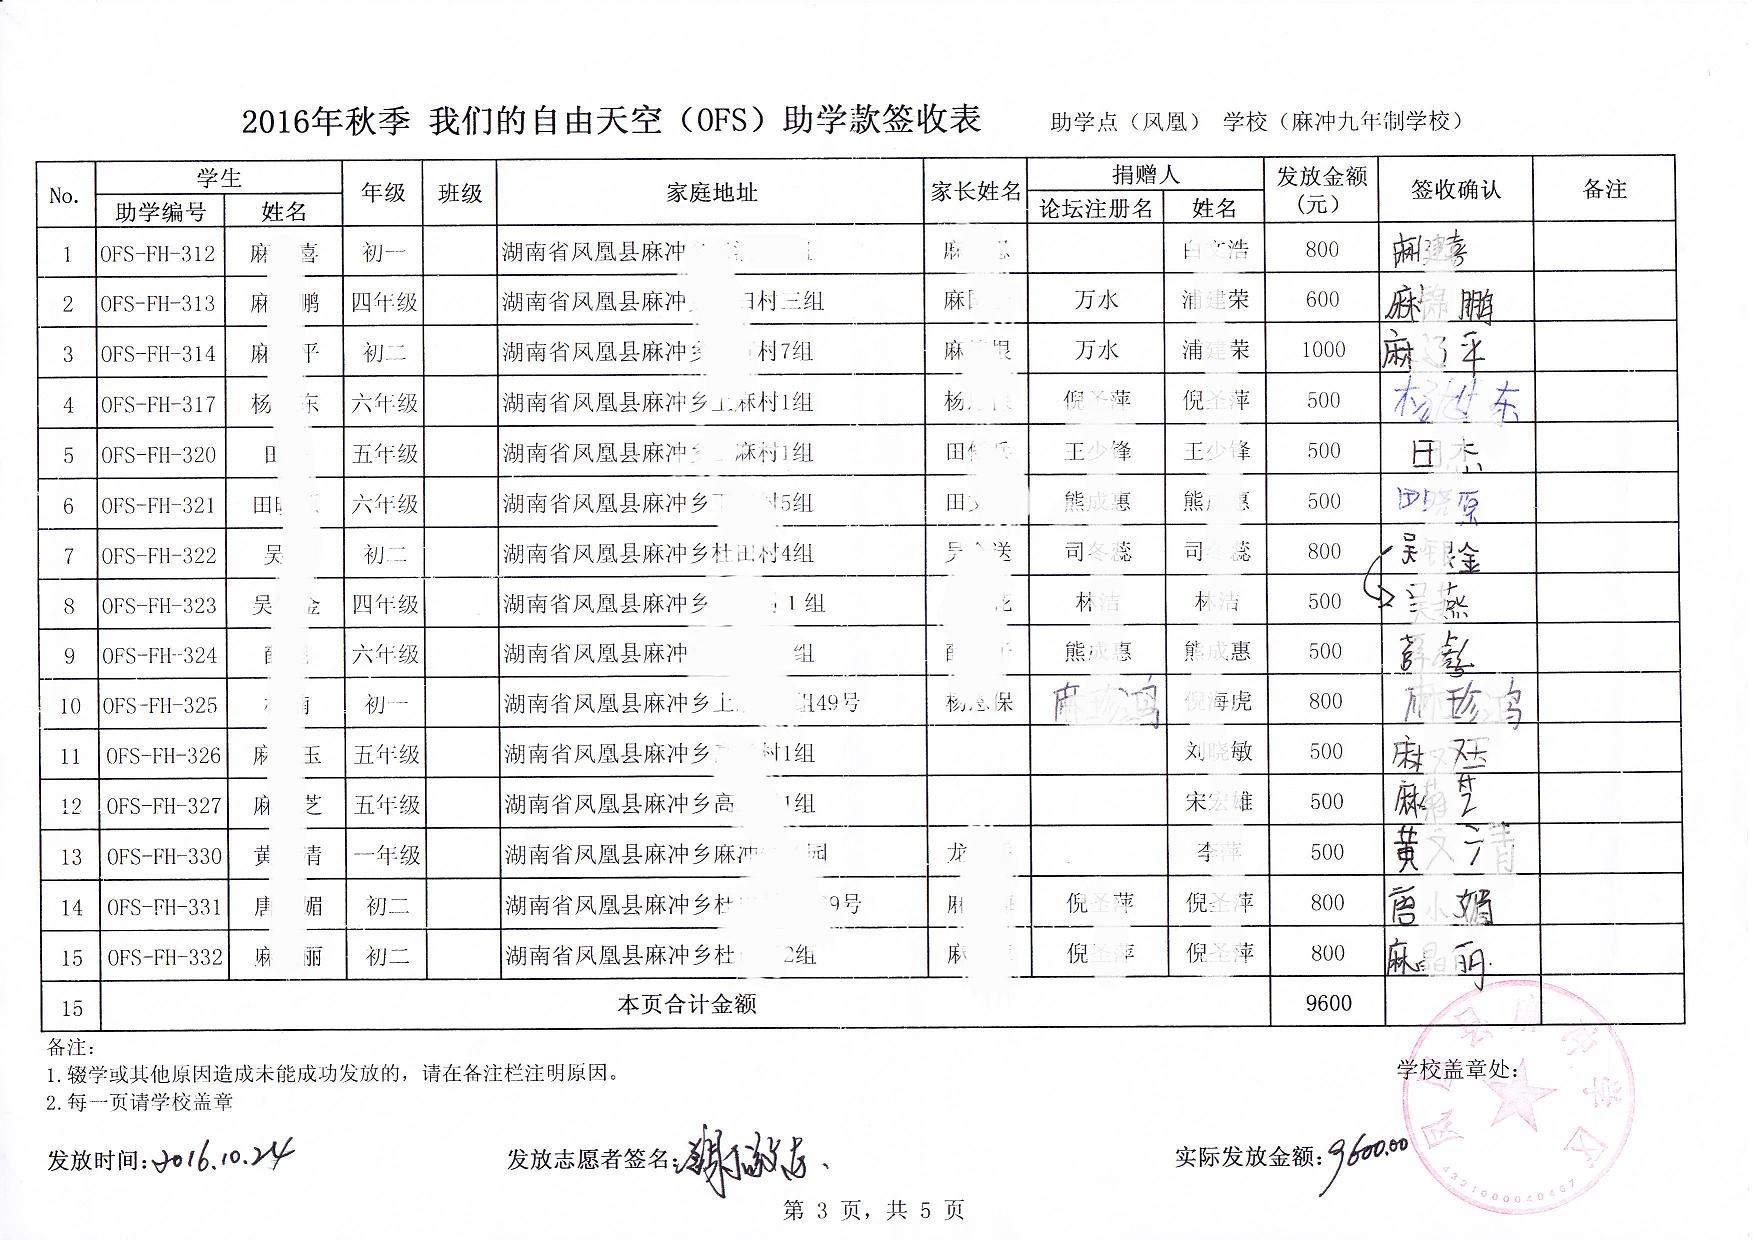 2016年秋季 我们的自由天空（OFS）助学款签收表 助学点（凤凰） 学校（麻冲九年制学校）
No. 学生 年级 班级 家庭地址 家长姓名 捐赠人 发放金额（元） 签收确认 备注
助学编号 姓名 论坛注册名 姓名
1 OFS-FH-312 麻 喜 初一 湖南省凤凰县麻冲 麻 白文浩 800
2 OFS-FH-313 麻 鹏 四年级 湖南省凤凰县麻冲 田村三组 麻 万水 浦建荣 600 麻 鹏
3 OFS-FH-314 麻 平 初二 湖南省凤凰县麻冲乡 村7组 麻 万水 浦建荣 1000 麻 平
4 OFS-FH-317 杨 东 六年级 湖南省凤凰县麻冲乡上麻村1组 杨 倪圣萍 倪圣萍 500 杨 东
5 OFS-FH-320 田 五年级 湖南省凤凰县麻冲乡 麻村1组 田 王少锋 王少锋 500 田杰
6 OFS-FH-321 田 六年级 湖南省凤凰县麻冲乡 村5组 田 熊成惠 熊 惠 500 田晓原
7 OFS-FH-322 吴 初二 湖南省凤凰县麻冲乡杜田村4组 吴 送 司冬蕊 司冬蕊 800 吴银金
8 OFS-FH-323 吴 金 四年级 湖南省凤凰县麻冲乡 1组 龙 林洁 林洁 500 吴燕
9 OFS-FH-324 六年级 湖南省凤凰县麻冲 组 熊成惠 熊成惠 500
10 OFS-FH-325 南 初一 湖南省凤凰县麻冲乡上 组49号 杨 保 麻珍鸿 倪海虎 800 麻珍鸿
11 OFS-FH-326 麻 玉 五年级 湖南省凤凰县麻冲乡 村1组 刘晓敏 500 麻双玉
12 OFS-FH-327 麻 芝 五年级 湖南省凤凰县麻冲乡高 1组 宋宏雄 500 麻 芝
13 OFS-FH-330 黄 清 一年级 湖南省凤凰县麻冲乡麻冲 园 龙 李萍 500 黄文清
14 OFS-FH-331 唐 媚 初二 湖南省凤凰县麻冲乡杜 9号 麻 倪圣萍 倪圣萍 800 唐小媚
15 OFS-FH-332 麻 丽 初二 湖南省凤凰县麻冲乡杜 2组 麻 倪圣萍 倪圣萍 800 麻晶丽
15 本页合计金额 9600
备注：
1.辍学或其他原因造成未能成功发放的，请在备注栏注明原因。
2.每一页请学校盖章
学校盖章处：
发放时间：2016.10.24 发放志愿者签名： 实际发放金额：9600.00
第 3 页，共 5 页